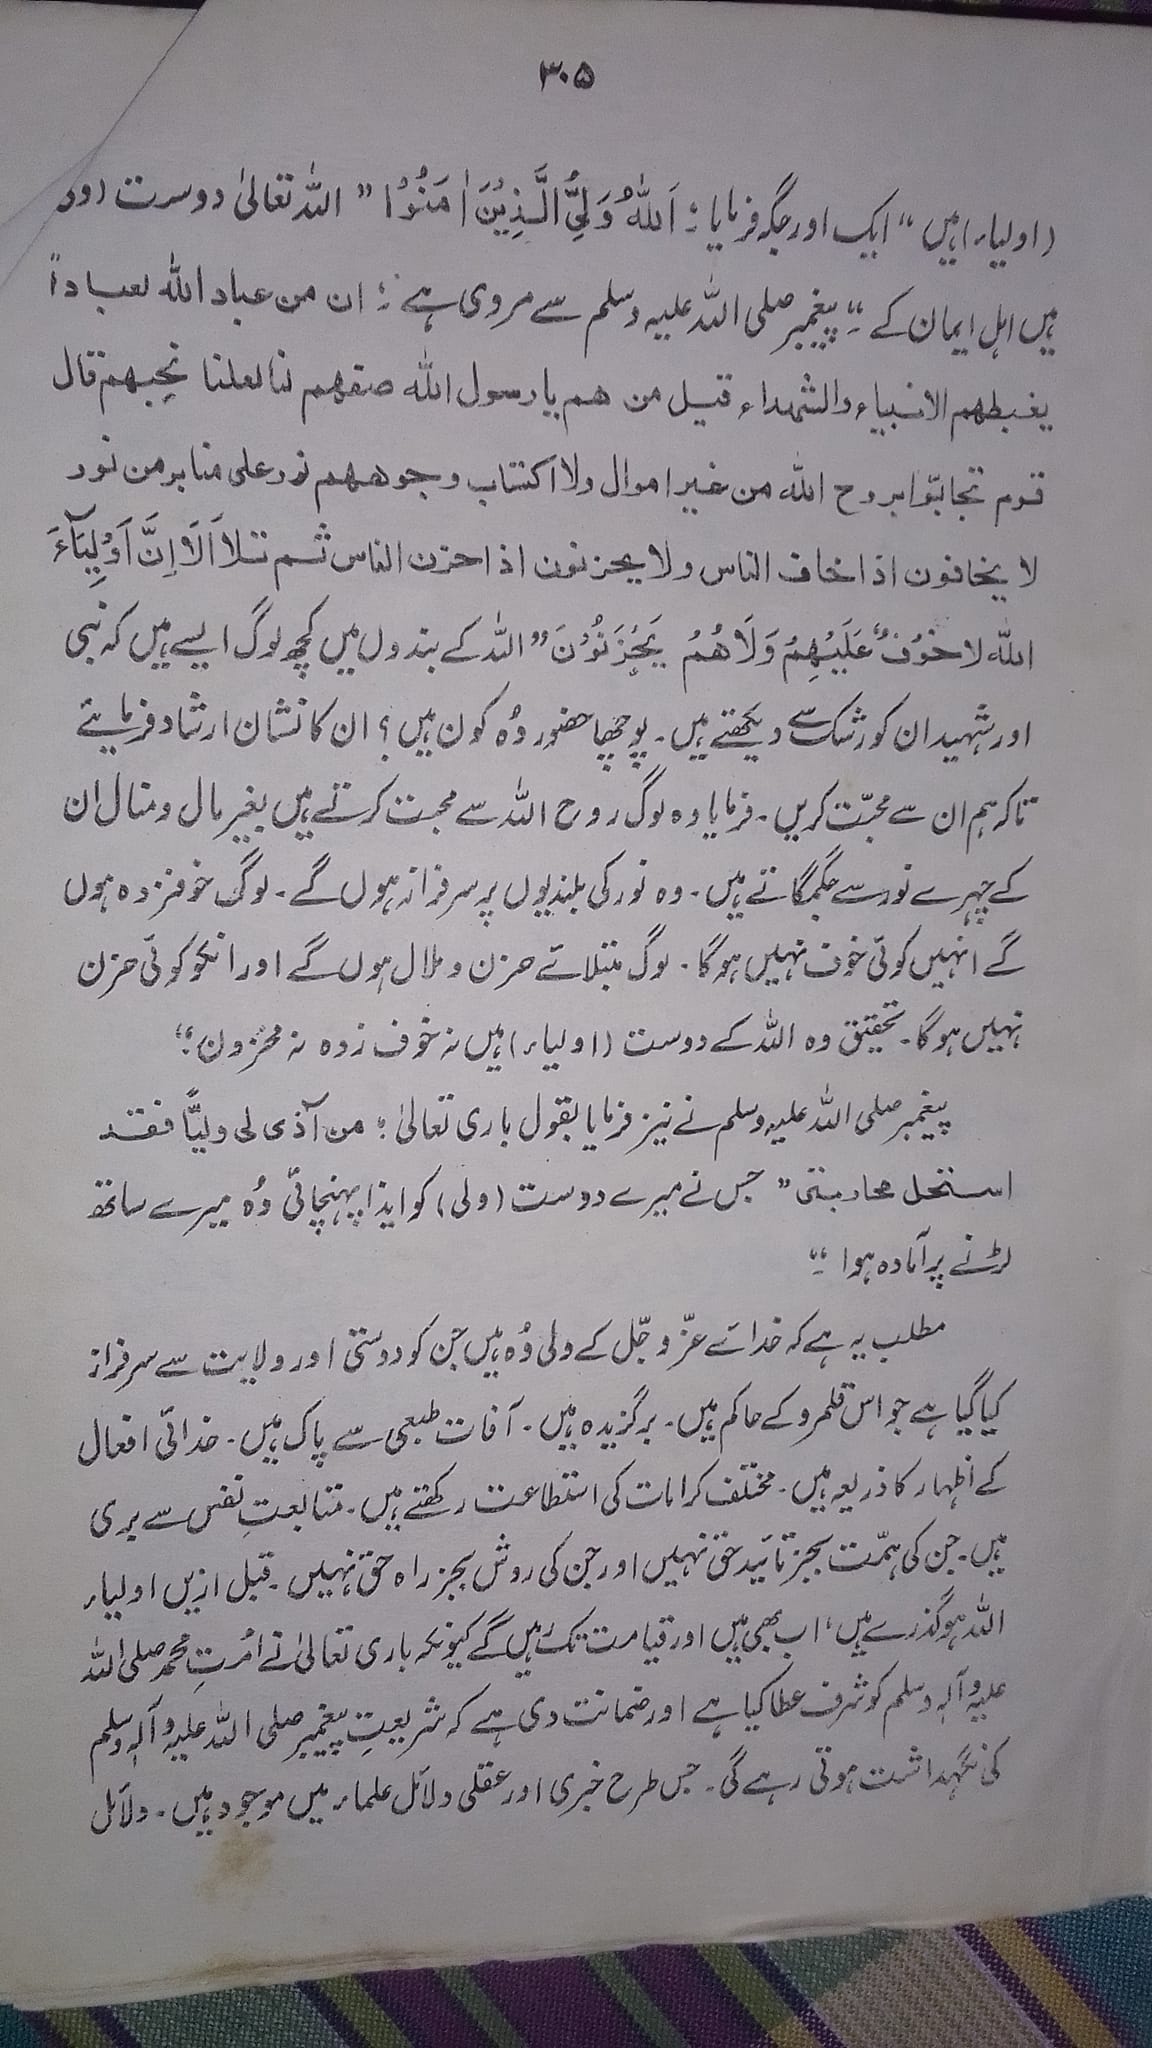 ۳۰۵
(اولیاء) ہیں“ ایک اور جگہ فرمایا: اَللّٰهُ وَلِيُّ الَّذِيْنَ اٰمَنُوْا ”اللہ تعالیٰ دوست (ولی
ہیں اہل ایمان کے“ پیغمبر صلی اللہ علیہ وسلم سے مروی ہے: ان من عباد اللّٰه لعباداً
يغبطهم الانبياء والشهداء قيل من هم يا رسول اللّٰه صفهم لنا لعلنا نحبهم قال
قوم تحابّوا بروح اللّٰه من غير اموال ولا اكتساب وجوههم نور على منابر من نور
لا يخافون اذا خاف الناس ولا يحزنون اذا احزن الناس ثم تلا اَلَا اِنَّ اَوْلِيَآءَ
اللّٰه لا خوْفٌ عَلَيْهِمْ وَلَا هُمْ يَحْزَنُوْنَ ”اللہ کے بندوں میں کچھ لوگ ایسے ہیں کہ نبی
اور شہید ان کو رشک سے دیکھتے ہیں۔ پوچھا حضور وُہ کون ہیں؟ ان کا نشان ارشاد فرمایئے
تاکہ ہم ان سے محبّت کریں۔ فرمایا وہ لوگ روح اللہ سے محبت کرتے ہیں بغیر مال و منال ان
کے چہرے نور سے جگمگاتے ہیں۔ وہ نور کی بلندیوں پر سرفراز ہوں گے۔ لوگ خوفزدہ ہوں
گے انہیں کوئی خوف نہیں ہو گا۔ لوگ مبتلائے حزن و ملال ہوں گے اور انکو کوئی حزن
نہیں ہو گا۔ تحقیق وہ اللہ کے دوست (اولیاء) ہیں نہ خوف زدہ نہ محزون؛“
پیغمبر صلی اللہ علیہ وسلم نے نیز فرمایا بقول باری تعالیٰ؛ من آذى لى وليًّا فقد
استحل محاربتى ”جس نے میرے دوست (ولی) کو ایذا پہنچائی وُہ میرے ساتھ
لڑنے پر آمادہ ہوا۔“
مطلب یہ ہے کہ خدائے عزّ و جّل کے ولی وُہ ہیں جن کو دوستی اور ولایت سے سرفراز
کیا گیا ہے جو اس قلمرو کے حاکم ہیں۔ برگزیدہ ہیں۔ آفات طبعی سے پاک ہیں۔ خدائی افعال
کے اظہار کا ذریعہ ہیں۔ مختلف کرامات کی استطاعت رکھتے ہیں۔ متابعتِ نفس سے بری
ہیں۔ جن کی ہمّت بجز تائید حق نہیں اور جن کی روش بجز راہ حق نہیں۔ قبل ازیں اولیاء
اللہ ہو گذرے ہیں، اب بھی ہیں اور قیامت تک رہیں گے کیونکہ باری تعالیٰ نے اُمّتِ محمد صلی اللہ
علیہ و آلہ وسلم کو شرف عطا کیا ہے اور ضمانت دی ہے کہ شریعتِ پیغمبر صلی اللہ علیہ و آلہ وسلم
کی نگہداشت ہوتی رہے گی۔ جس طرح خبری اور عقلی دلائل علماء میں موجود ہیں۔ دلائل